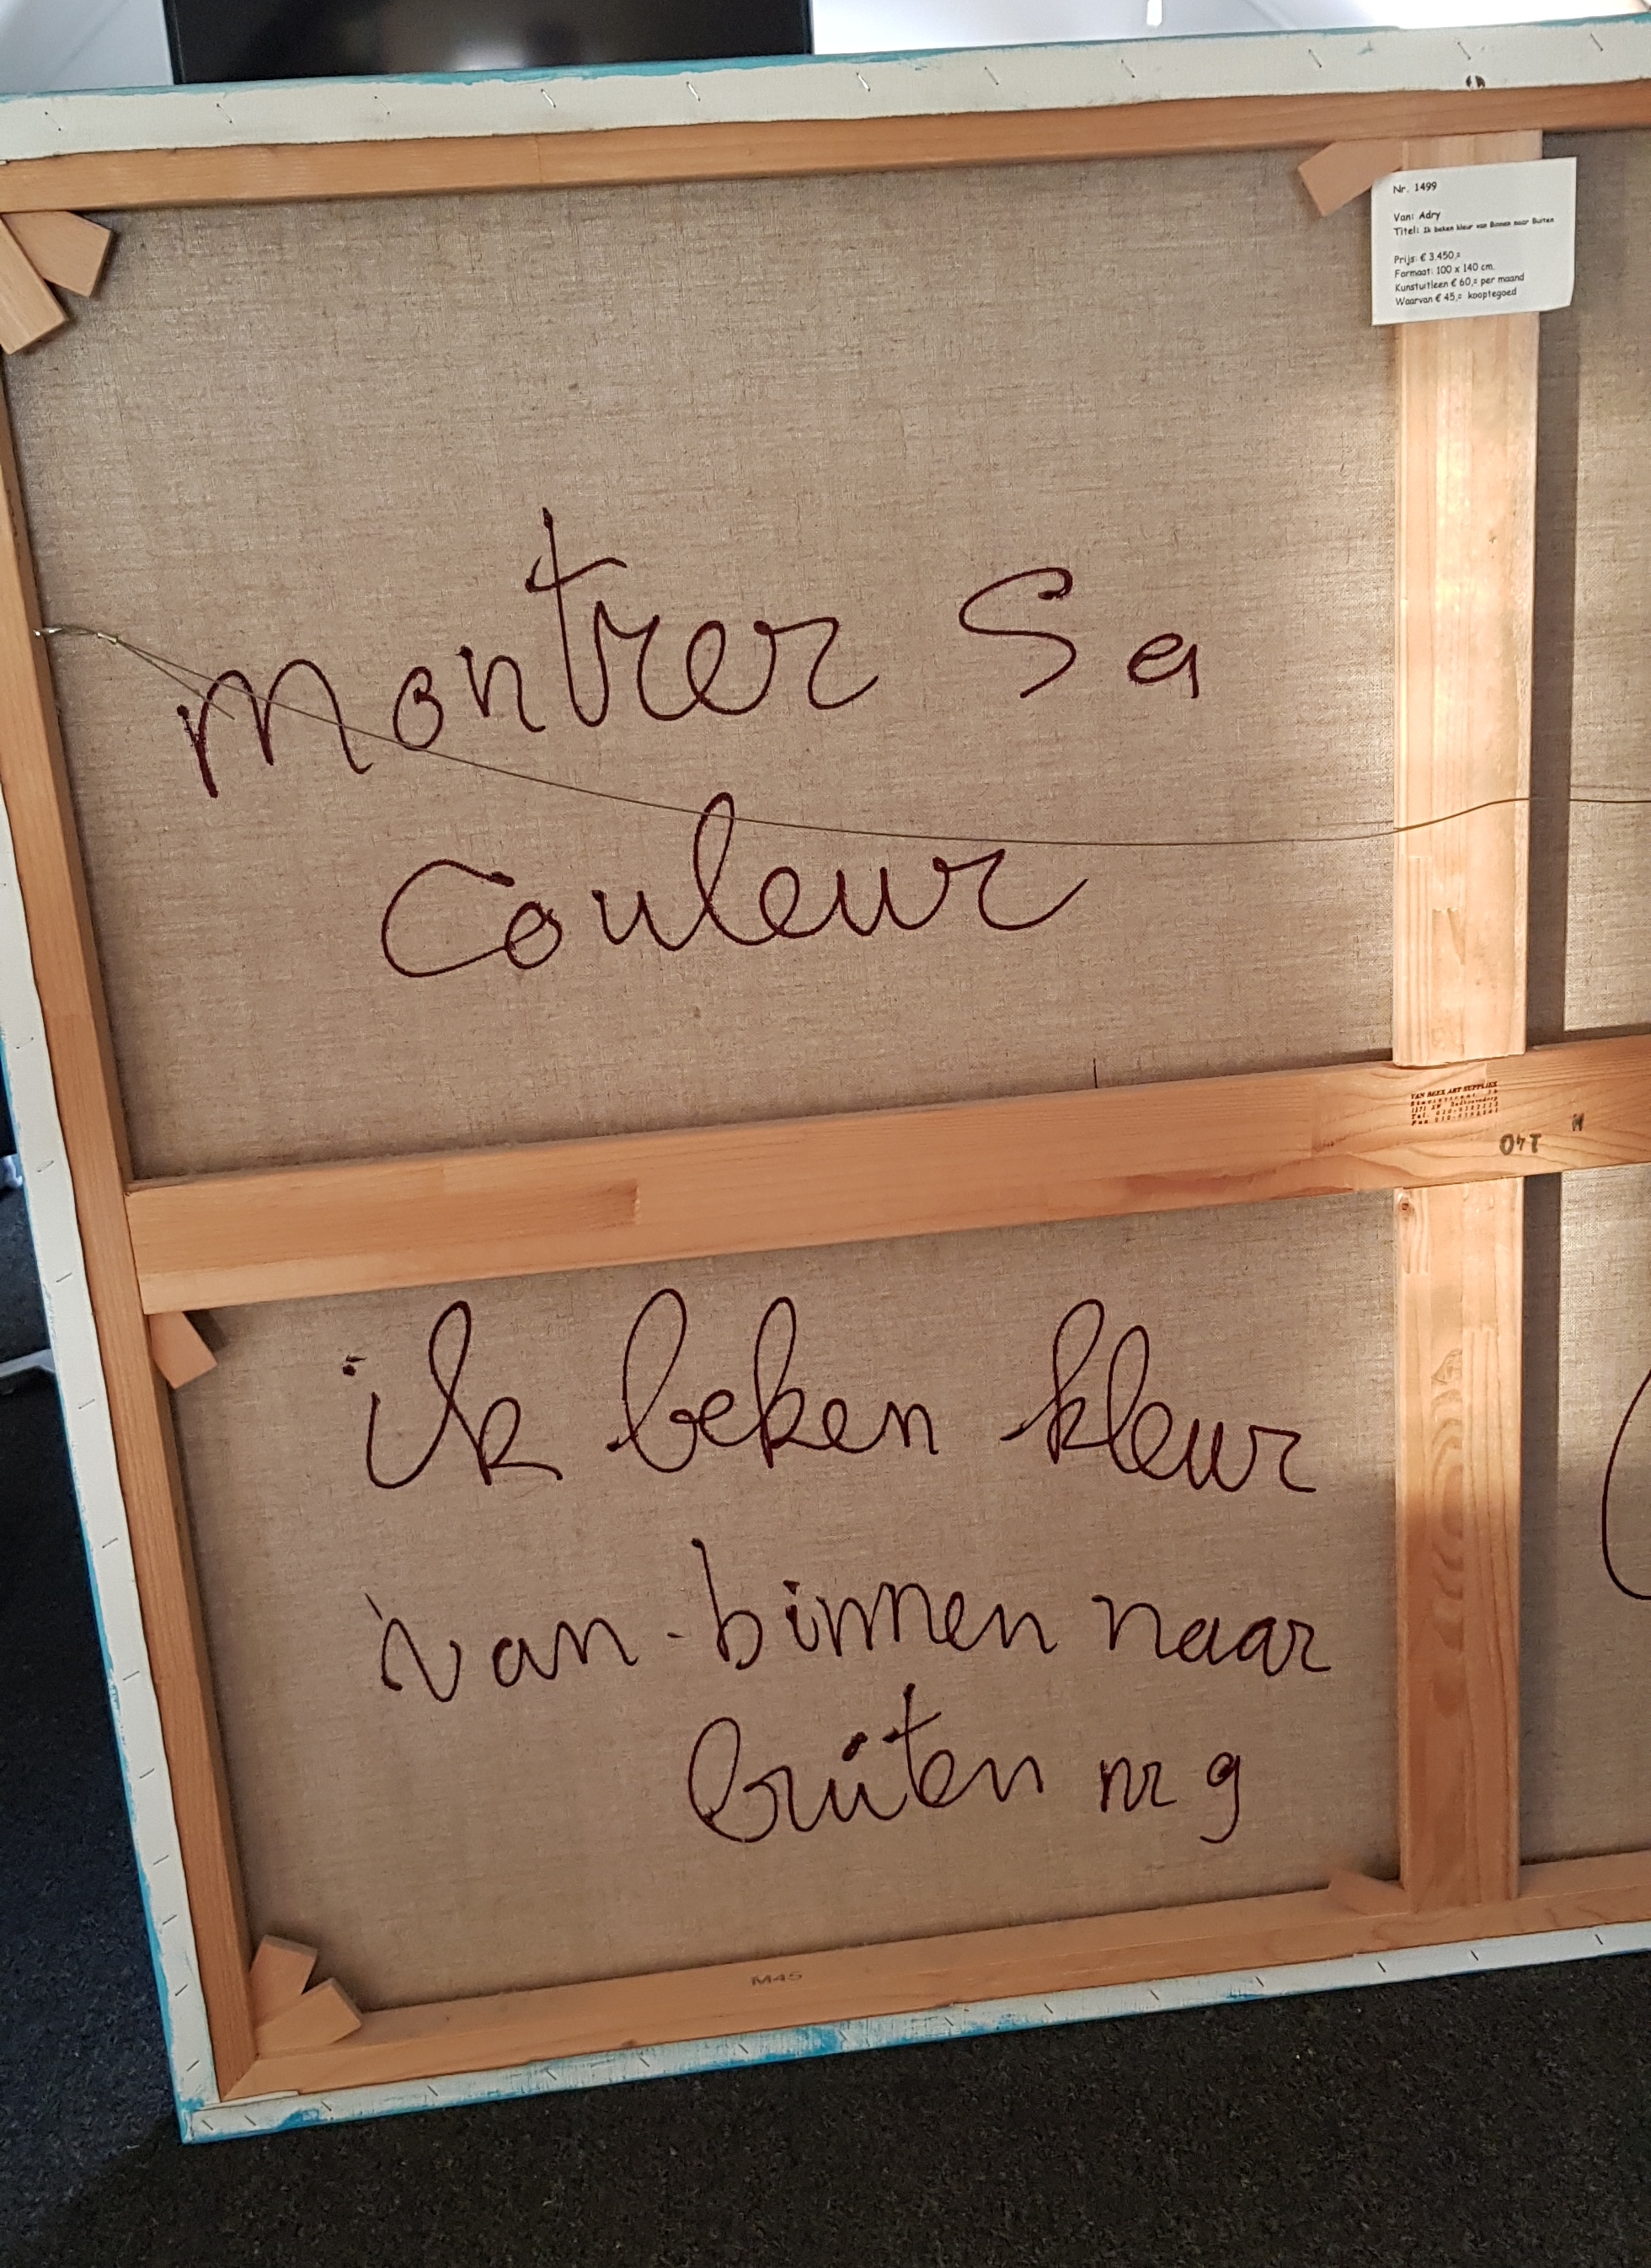 Nr. 1499
Van: Adry
Titel: Ik beken kleur van Binnen naar Buiten
Prijs: € 3.450,=
Formaat: 100 x 140 cm.
Kunstuitleen € 60,= per maand
Waarvan € 45,= kooptegoed
Montrer Sa
Couleur
VAN BEEK ART SUPPLIES
140
M
ik beken kleur
van binnen naar
buiten nr 9
M45